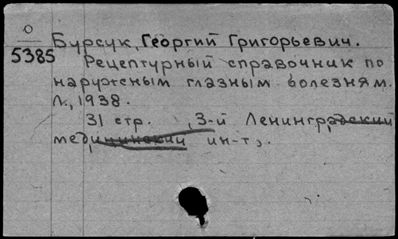 О
5385
Бурсук, Георгий Григорьевич.
Рецептурный справочник по
наружным глазным болезням.
Л., 1938.
31 стр. , 3-й Ленинградский
медицинский ин-т,.